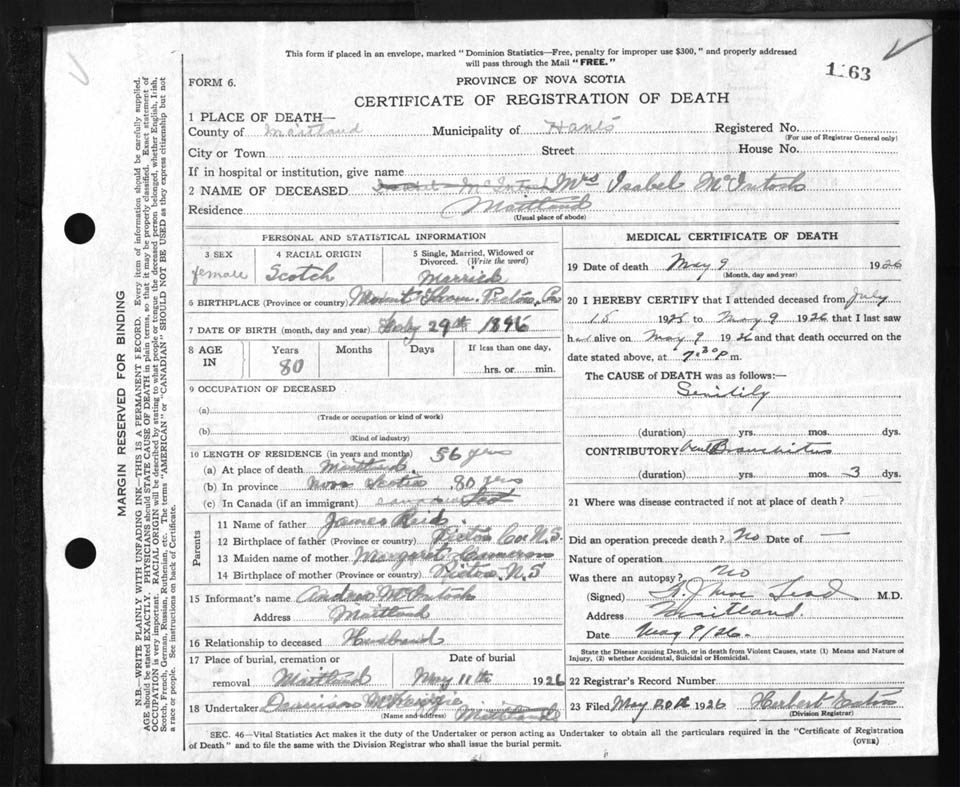 This form if placed in an envelope, marked "Dominion Statistics—Free, penalty for improper use $300," and properly addressed
will pass through the Mail "FREE."
FORM 6.
PROVINCE OF NOVA SCOTIA
CERTIFICATE OF REGISTRATION OF DEATH
1 PLACE OF DEATH—
County of Maitland Municipality of Hants Registered No.
(For use of Registrar General only)
City or Town Street House No.
If in hospital or institution, give name
2 NAME OF DECEASED McIntosh Mrs Isabel McIntosh
Residence Maitland
(Usual place of abode)
PERSONAL AND STATISTICAL INFORMATION
3 SEX 4 RACIAL ORIGIN 5 Single, Married, Widowed or
Divorced. (Write the word)
female Scotch Married
6 BIRTHPLACE (Province or country) Mount Thom. Pictou Co
7 DATE OF BIRTH (month, day and year) 29th 1846
8 AGE IN Years Months Days If less than one day,
80 hrs. or min.
9 OCCUPATION OF DECEASED
(a)
(Trade or occupation or kind of work)
(b)
(Kind of industry)
10 LENGTH OF RESIDENCE (in years and months) 56 yrs
(a) At place of death Maitland
(b) In province Nova Scotia 80 yrs
(c) In Canada (if an immigrant)
Parents
11 Name of father James Reid
12 Birthplace of father (Province or country) Pictou Co. N.S.
13 Maiden name of mother Margaret Cameron
14 Birthplace of mother (Province or country) Pictou N.S
15 Informant's name Andrew McIntosh
Address Maitland
16 Relationship to deceased Husband
17 Place of burial, cremation or Date of burial
removal Maitland May 11th 1926
18 Undertaker McKenzie
(Name and address) Maitland
MEDICAL CERTIFICATE OF DEATH
19 Date of death May 9 1926
(Month, day and year)
20 I HEREBY CERTIFY that I attended deceased from July
15 1925 to May 9 1926 that I last saw
her alive on May 9 1926 and that death occurred on the
date stated above, at 7.30 P m.
The CAUSE of DEATH was as follows:—
Senility
(duration) yrs. mos. dys.
CONTRIBUTORY Bronchitis
(duration) yrs. mos. 3 dys.
21 Where was disease contracted if not at place of death?
Did an operation precede death? No Date of —
Nature of operation
Was there an autopsy? No
(Signed) M.D.
Address Maitland.
Date May 9/26.
State the Disease causing Death, or in death from Violent Causes, state (1) Means and Nature of
Injury, (2) whether Accidental, Suicidal or Homicidal.
22 Registrar's Record Number
23 Filed May 20th 1926 Herbert
(Division Registrar)
SEC. 46—Vital Statistics Act makes it duty of the Undertaker or person acting as Undertaker to obtain all the particulars required in the "Certificate of Registration
of Death" and to file the same with the Division Registrar who shall issue the burial permit.
(OVER)
MARGIN RESERVED FOR BINDING
N.B.—WRITE PLAINLY WITH UNFADING INK—THIS IS A PERMANENT RECORD. Every item of information should be carefully supplied.
AGE should be stated EXACTLY. PHYSICIANS should STATE CAUSE OF DEATH in plain terms, so that it may be properly classified. Exact statement of
OCCUPATION is very important. RACIAL ORIGIN will be described by stating to what people or tongue the deceased person belonged, whether English, Irish,
Scotch, French, German, Russian, Ruthenian, etc. The terms "AMERICAN" or "CANADIAN" SHOULD NOT BE USED as they express citizenship but not
a race or people. See instructions on back of Certificate.